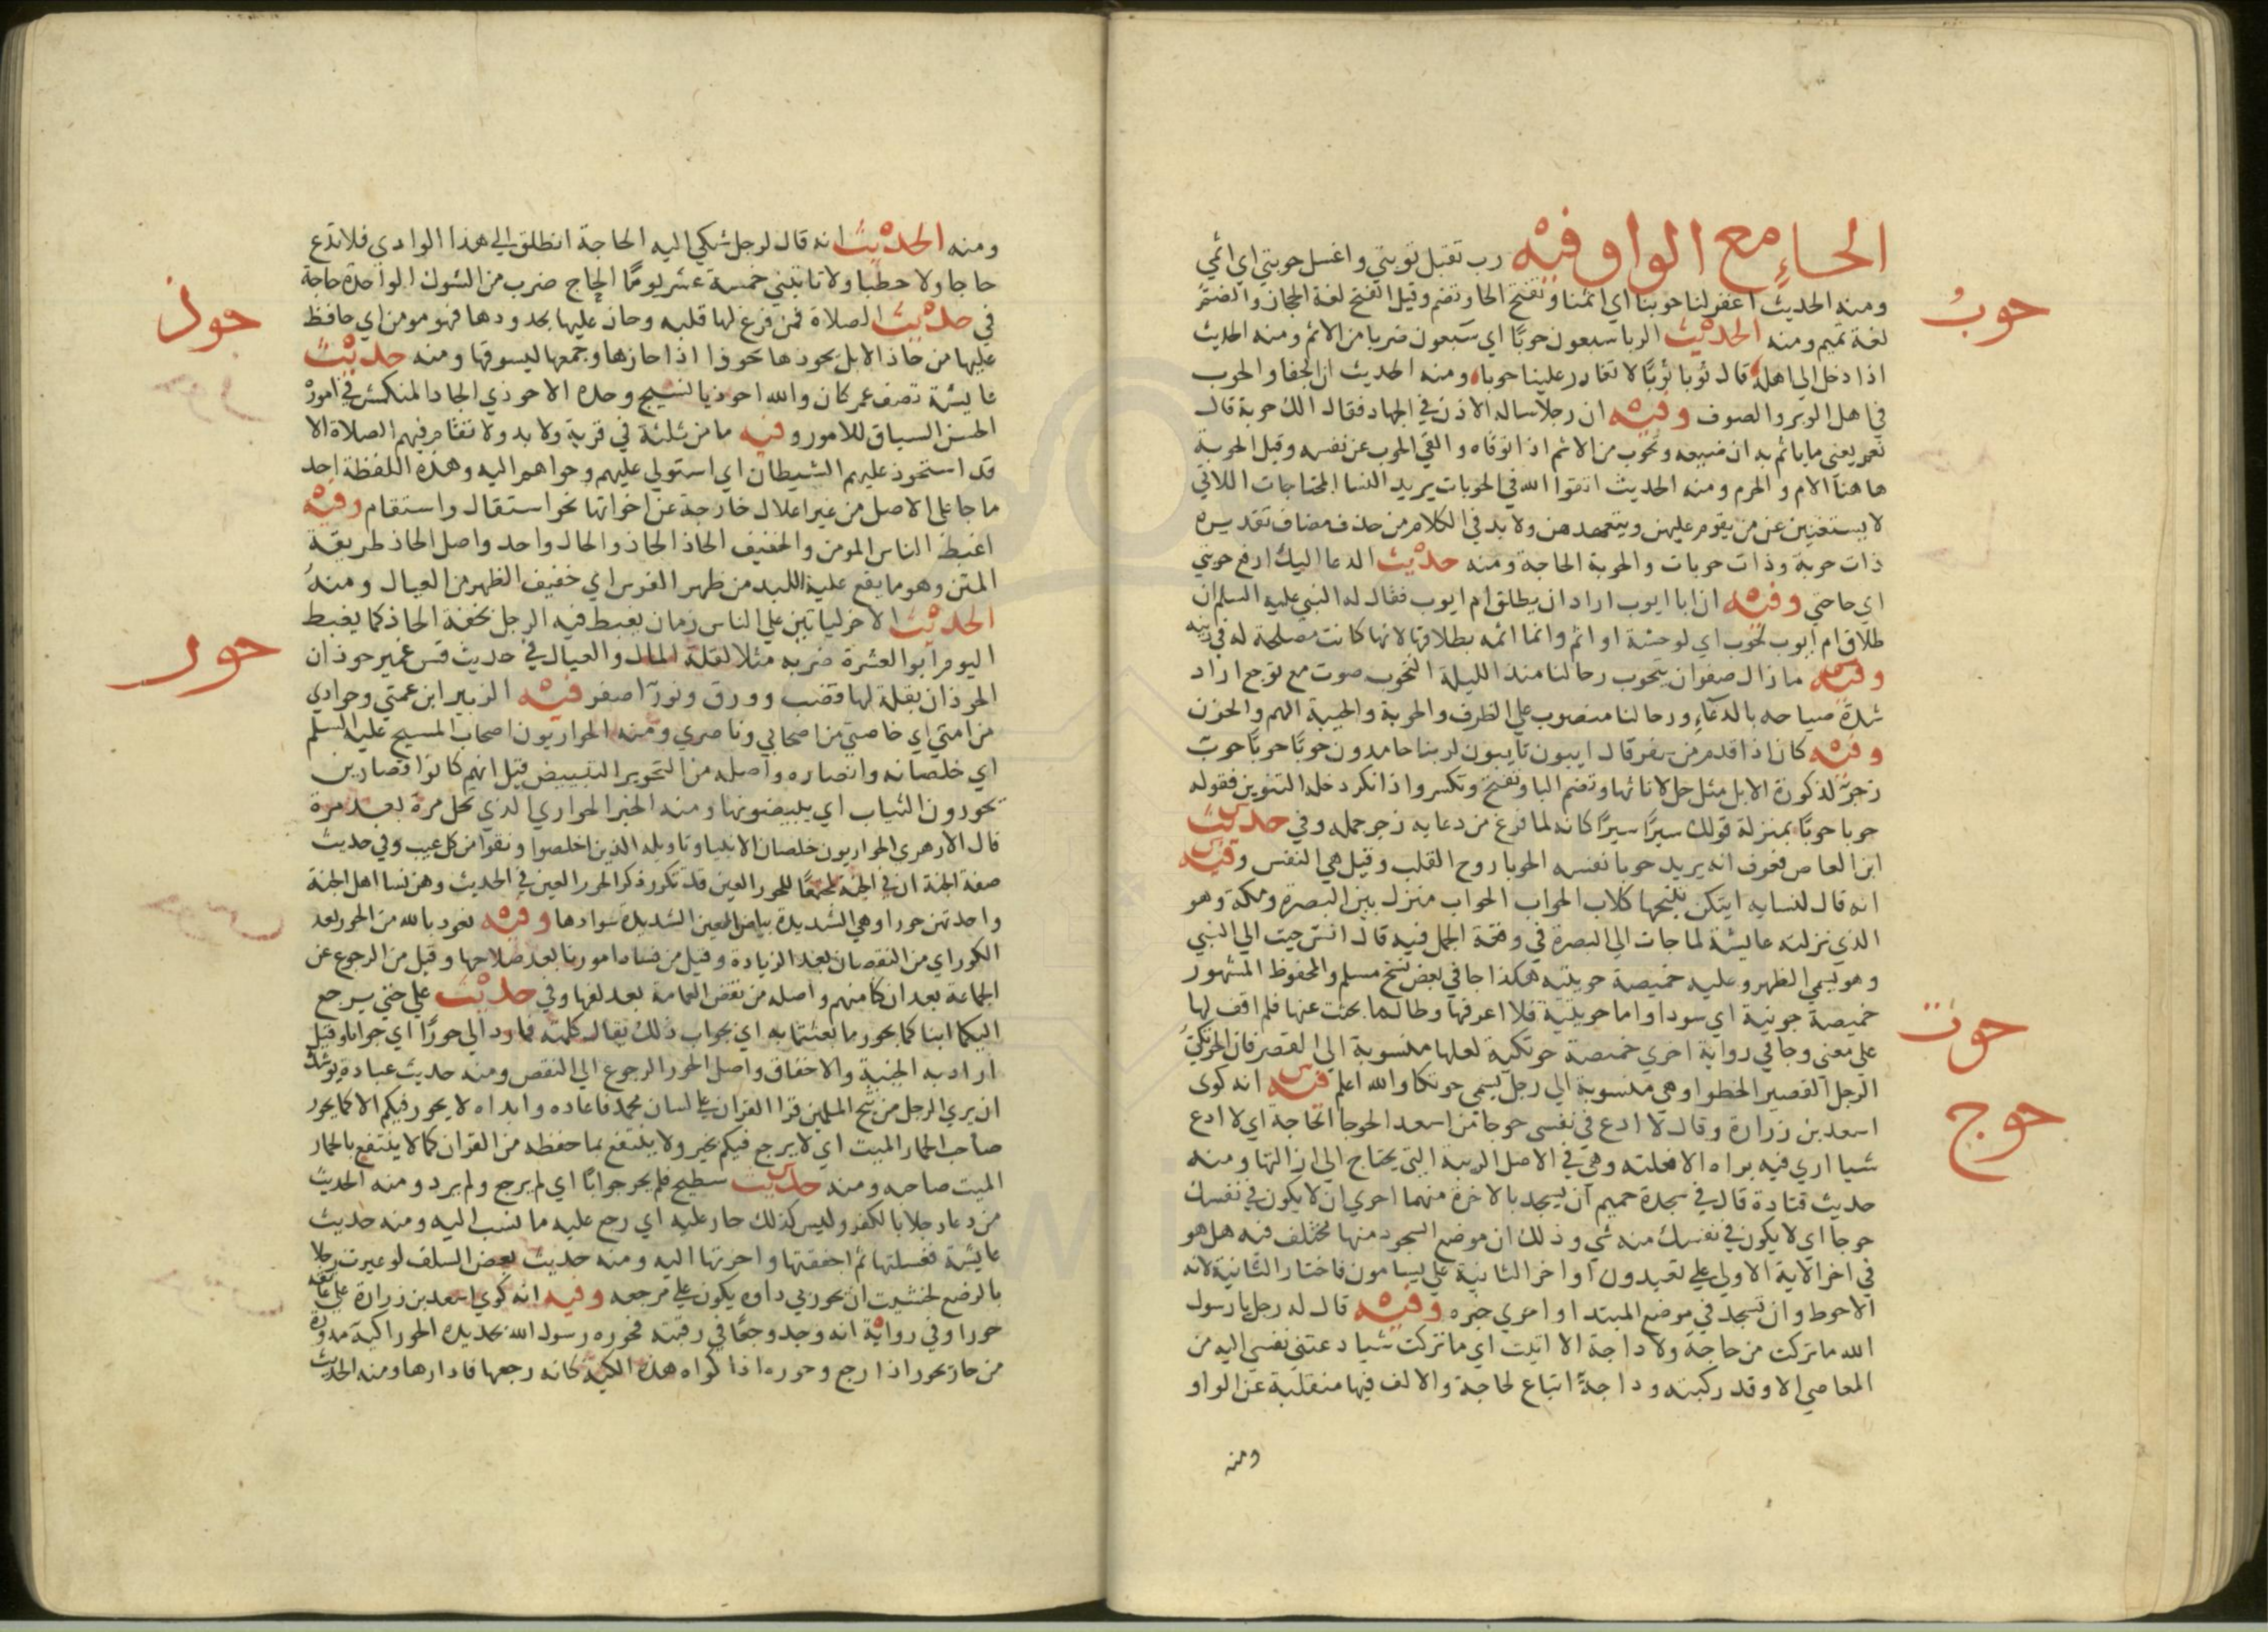 الحاء مع الواو فيه رب تقبل توبتي واغسل حوبتي اي اثمي
حوب
ومنه الحديث اغفر لنا حوبنا اي اثمنا وتفتح الحا وتضم وقيل الفتح لغة الحجاز والضم
لغة تميم ومنه الحديث الربا سبعون حوبا اي سبعون ضربا من الاثم ومنه الحديث
اذا دخل الي اهله قال توبا توبا لا تغادر علينا حوبا ومنه الحديث ان الجفا والحوب
في اهل الوبر والصوف وفيه ان رجلا ساله الاذن في الجهاد فقال الك حوبة قال
نعم يعني ما ياثم به ان ضيعه وتحوب من الاثم اذا توقاه والقي الحوب عن نفسه وقيل الحوبة
هاهنا الام والحرم ومنه الحديث اتقوا الله في الحوبات يريد النسا المحتاجات اللاتي
لا يستغنين عن من يقوم عليهن ويتعهدهن ولا بد في الكلام من حذف مضاف تقديره
ذات حوبة وذات حوبات والحوبة الحاجة ومنه حديث الدعا اليك ارفع حوبتي
اي حاجتي وفيه ان ابا ايوب اراد ان يطلق ام ايوب فقال له النبي عليه السلم ان
طلاق ام ايوب لحوب اي لوحشة او اثم وانما اثمه بطلاقها لانها كانت مصلحة له في دينه
وفيه ما زال صفوان يتحوب رحالنا منذ الليلة التحوب صوت مع توجع اراد
شدة صياحه بالدعاء ورحالنا منصوب علي الظرف والحوبة والحيبة الهم والحزن
وفيه كان اذا قدم من سفر قال ايبون تايبون لربنا حامدون حوبا حوبا حوب
زجر لذكورة الابل مثل حل لاناثها وتضم البا وتفتح وتكسر واذا نكر دخله التنوين فقوله
حوبا حوبا بمنزلة قولك سيرا سيرا كانه لما فرغ من دعايه زجر جمله وفي حديث
ابن العاص فعرف انه يريد حوبا نفسه الحوبا روح القلب وقيل هي النفس وفيه
انه قال لنسايه ايتكن تنبحها كلاب الحواب الحواب منزل بين البصرة ومكة وهو
الذي نزلته عايشة لما جات الي البصرة في وقعة الجمل فيه قال انس جيت الي النبي
وهو يسمي الظهر وعليه خميصة حويتيه هكذا جا في بعض نسخ مسلم والمحفوظ المشهور
حوت
خميصة جونية اي سودا واما حويتية فلا اعرفها وطالما بحثت عنها فلم اقف لها
علي معني وجا في رواية اخري خميصة حوتكية لعلها منسوبة الي القصر فان الحوتكي
الرجل القصير الخطوا وهي منسوبة الي رجل يسمي حوتكا والله اعلم فيه انه كوي
حوج
اسعد بن زرارة وقال لا ادع في نفسي حوجا من اسعد الحوجا الحاجة اي لا ادع
شيا اري فيه براه الا فعلته وهي في الاصل الريبة التي يحتاج الي ازالتها ومنه
حديث قتادة قال في سجدة حميم ان يسجد بالاخرة منهما احري ان لا يكون في نفسك
حوجا اي لا يكون في نفسك منه شي وذلك ان موضع السجود منها مختلف فيه هل هو
في اخر الاية الاولي علي تعبدون او اخر الثانية علي يسامون فاختار الثانية لانه
الاحوط وان تسجد في موضع المبتدا واحري خبره وفيه قال له رجل يا رسول
الله ما تركت من حاجة ولا داجة الا اتيت اي ما تركت شيا دعتني نفسي اليه من
المعاصي الا وقد ركبته وداجة اتباع لحاجة والالف فيها منقلبة عن الواو
ومنه
ومنه الحديث انه قال لرجل شكي اليه الحاجة انطلق الي هذا الوادي فلا تدع
حاجا ولا حطبا ولا تاتيني خمسة عشر يوما الحاج ضرب من الشوك الواحدة حاجة
حوذ
في حديث الصلاة فمن فرغ لها قلبه وحاذ عليها بحدودها فهو مومن اي حافظ
عليها من حاذ الابل يحوذها حوذا اذا حازها وجمعها ليسوقها ومنه حديث
عايشة تصف عمر كان والله احوذيا نسيج وحده الاحوذي الجاد المنكمش في اموره
الحسن السياق للامور وفيه ما من ثلثة في قرية ولا بدو ولا تقام فيهم الصلاة الا
قد استحوذ عليهم الشيطان اي استولي عليهم وحواهم اليه وهذه اللفظة احد
ما جا علي الاصل من غير اعلال خارجة عن اخواتها نحو استقال واستقام وفيه
اغبط الناس المومن والخفيف الحاذ الحاذ والحال واحد واصل الحاذ طريقة
المتن وهو ما يقع عليه اللبد من ظهر الفرس اي خفيف الظهر من العيال ومنه
الحديث الاخر لياتين علي الناس زمان يغبط فيه الرجل بخفة الحاذ كما يغبط
اليوم ابو العشرة ضربه مثلا لقلة المال والعيال في حديث قس عمير حوذان
حور
الحوذان بقلة لها قضب وورق ونور اصفر فيه الزبير ابن عمتي وحواري
من امتي اي خاصتي من اصحابي وناصري ومنه الحواريون اصحاب المسيح عليه السلم
اي خلصانه وانصاره واصله من التحوير التبييض قيل انهم كانوا قصارين
يحورون الثياب اي يبيضونها ومنه الخبز الحواري الذي نخل مرة بعد مرة
قال الازهري الحواريون خلصان الانبيا وتاويله الذين اخلصوا ونقوا من كل عيب وفي حديث
صفة الجنة ان في الجنة لمجتمعا للحور العين قد تكرر ذكر الحور العين في الحديث وهن نسا اهل الجنة
واحدتهن حورا وهي الشديدة بياض العين الشديدة سوادها وفيه نعوذ بالله من الحور بعد
الكور اي من النقصان بعد الزيادة وقيل من فساد امورنا بعد صلاحها وقيل من الرجوع عن
الجماعة بعد ان كنا منهم واصله من نقض العمامة بعد لفها وفي حديث علي حتي يرجع
اليكما ابنا كما بحور ما بعثتما به اي بجواب ذلك يقال كلمته فما رد الي حورا اي جوابا وقيل
اراد به الخيبة والاخفاق واصل الحور الرجوع الي النقص ومنه حديث عبادة يوشك
ان يري الرجل من ثبج المسلمين قرا القران علي لسان محمد فاعاده وابداه لا يحور فيكم الا كما يحور
صاحب الحمار الميت اي لا يرجع فيكم بخير ولا ينتفع بما حفظه من القران كما لا ينتفع بالحمار
الميت صاحبه ومنه حديث سطيح فلم يحر جوابا اي لم يرجع ولم يرد ومنه الحديث
من دعا رجلا بالكفر وليس كذلك حار عليه اي رجع عليه ما نسب اليه ومنه حديث
عايشة فغسلتها ثم اجففتها واحرتها اليه ومنه حديث بعض السلف لو عيرت رجلا
بالرضع لخشيت ان يحور بي داوه يكون علي مرجعه وفيه انه كوي اسعد بن زرارة علي عاتقه
حورا وفي رواية انه وجد وجعا في رقبته فحوره رسول الله بحديدة الحورا كية مدورة
من حار يحور اذا رجع وحوره اذا كواه هذه الكية كانه رجعها فادارها ومنه الحديث